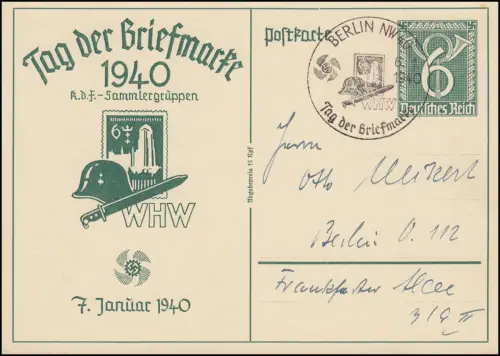 Tag der Briefmarke
1940
K.d.F.-Sammlergruppen
6
WHW
7. Januar 1940
Postkarte
BERLIN NW
1940
WHW
Tag der Briefmarke
6
Deutsches Reich
Abgabepreis 15 Rpf
Herrn
Otto
Berlin O. 112
Frankfurter Allee